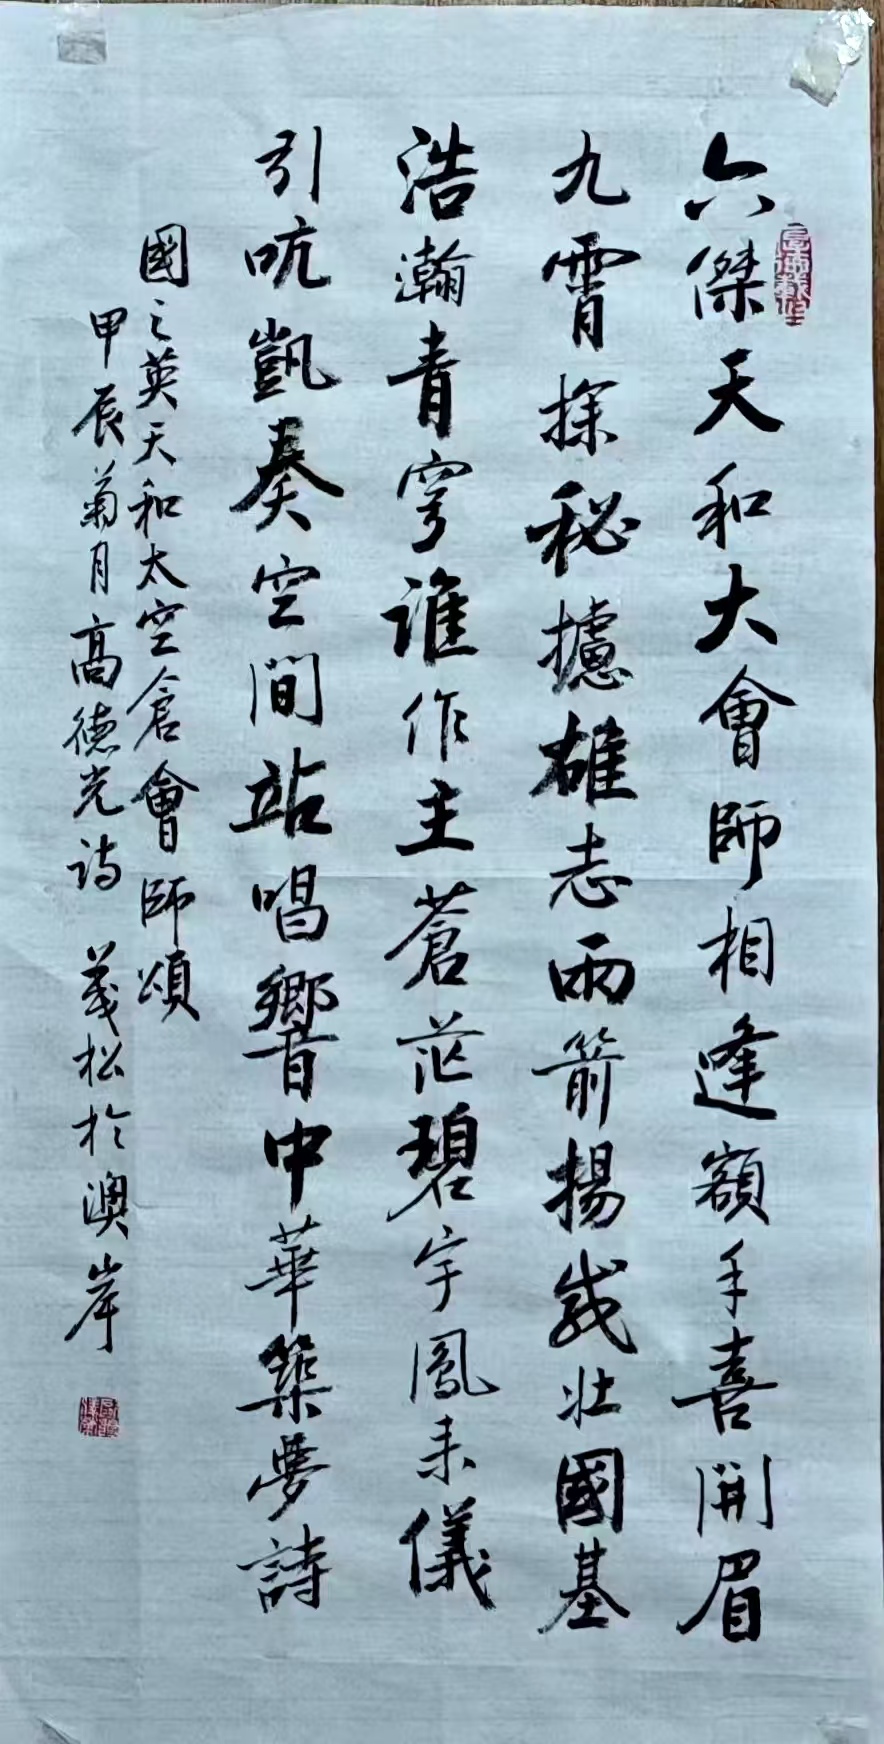 六傑天和大會師相逢額手喜開眉
九霄探秘攄雄志兩箭揚威壯國基
浩瀚青穹誰作主蒼茫碧宇鳳來儀
引吭凱奏空間站唱響中華築夢詩
國之英天和太空倉會師頌
甲辰菊月高德光诗 義松於澳岸
厚德載物